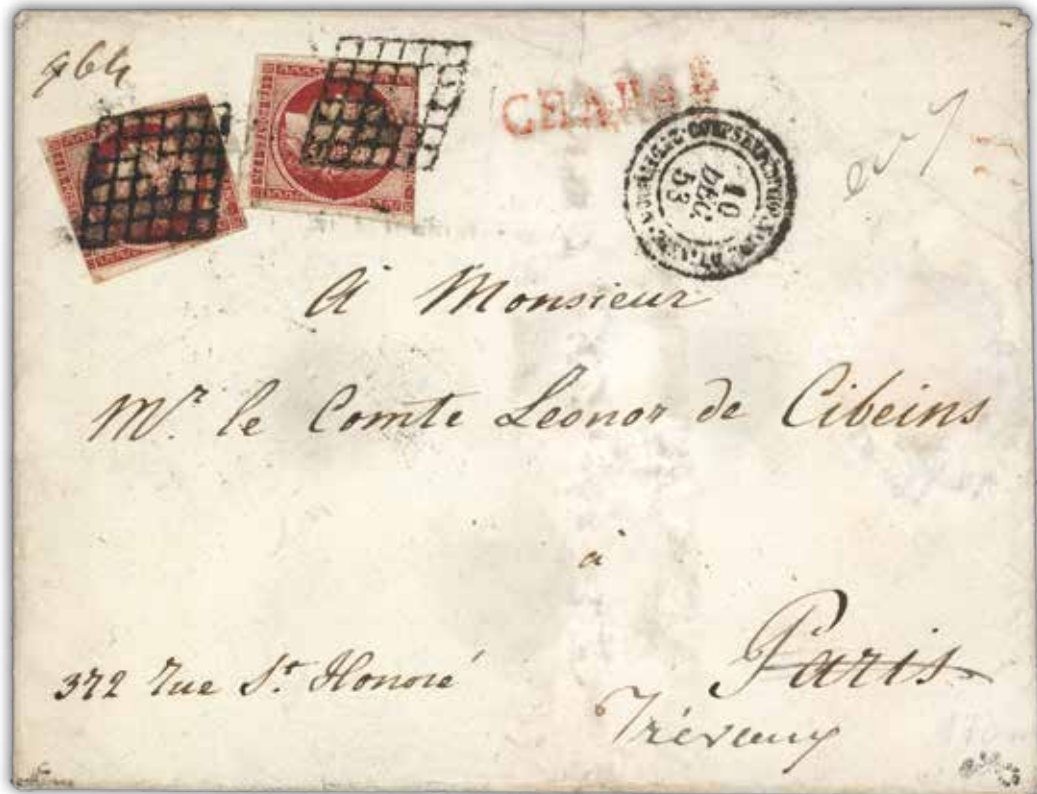 964
CHARGÉ
10
DÉC.
53
A Monsieur
Mr. le Comte Léonor de Cibeins
à
Paris
372 Rue St. Honoré
Trévoux